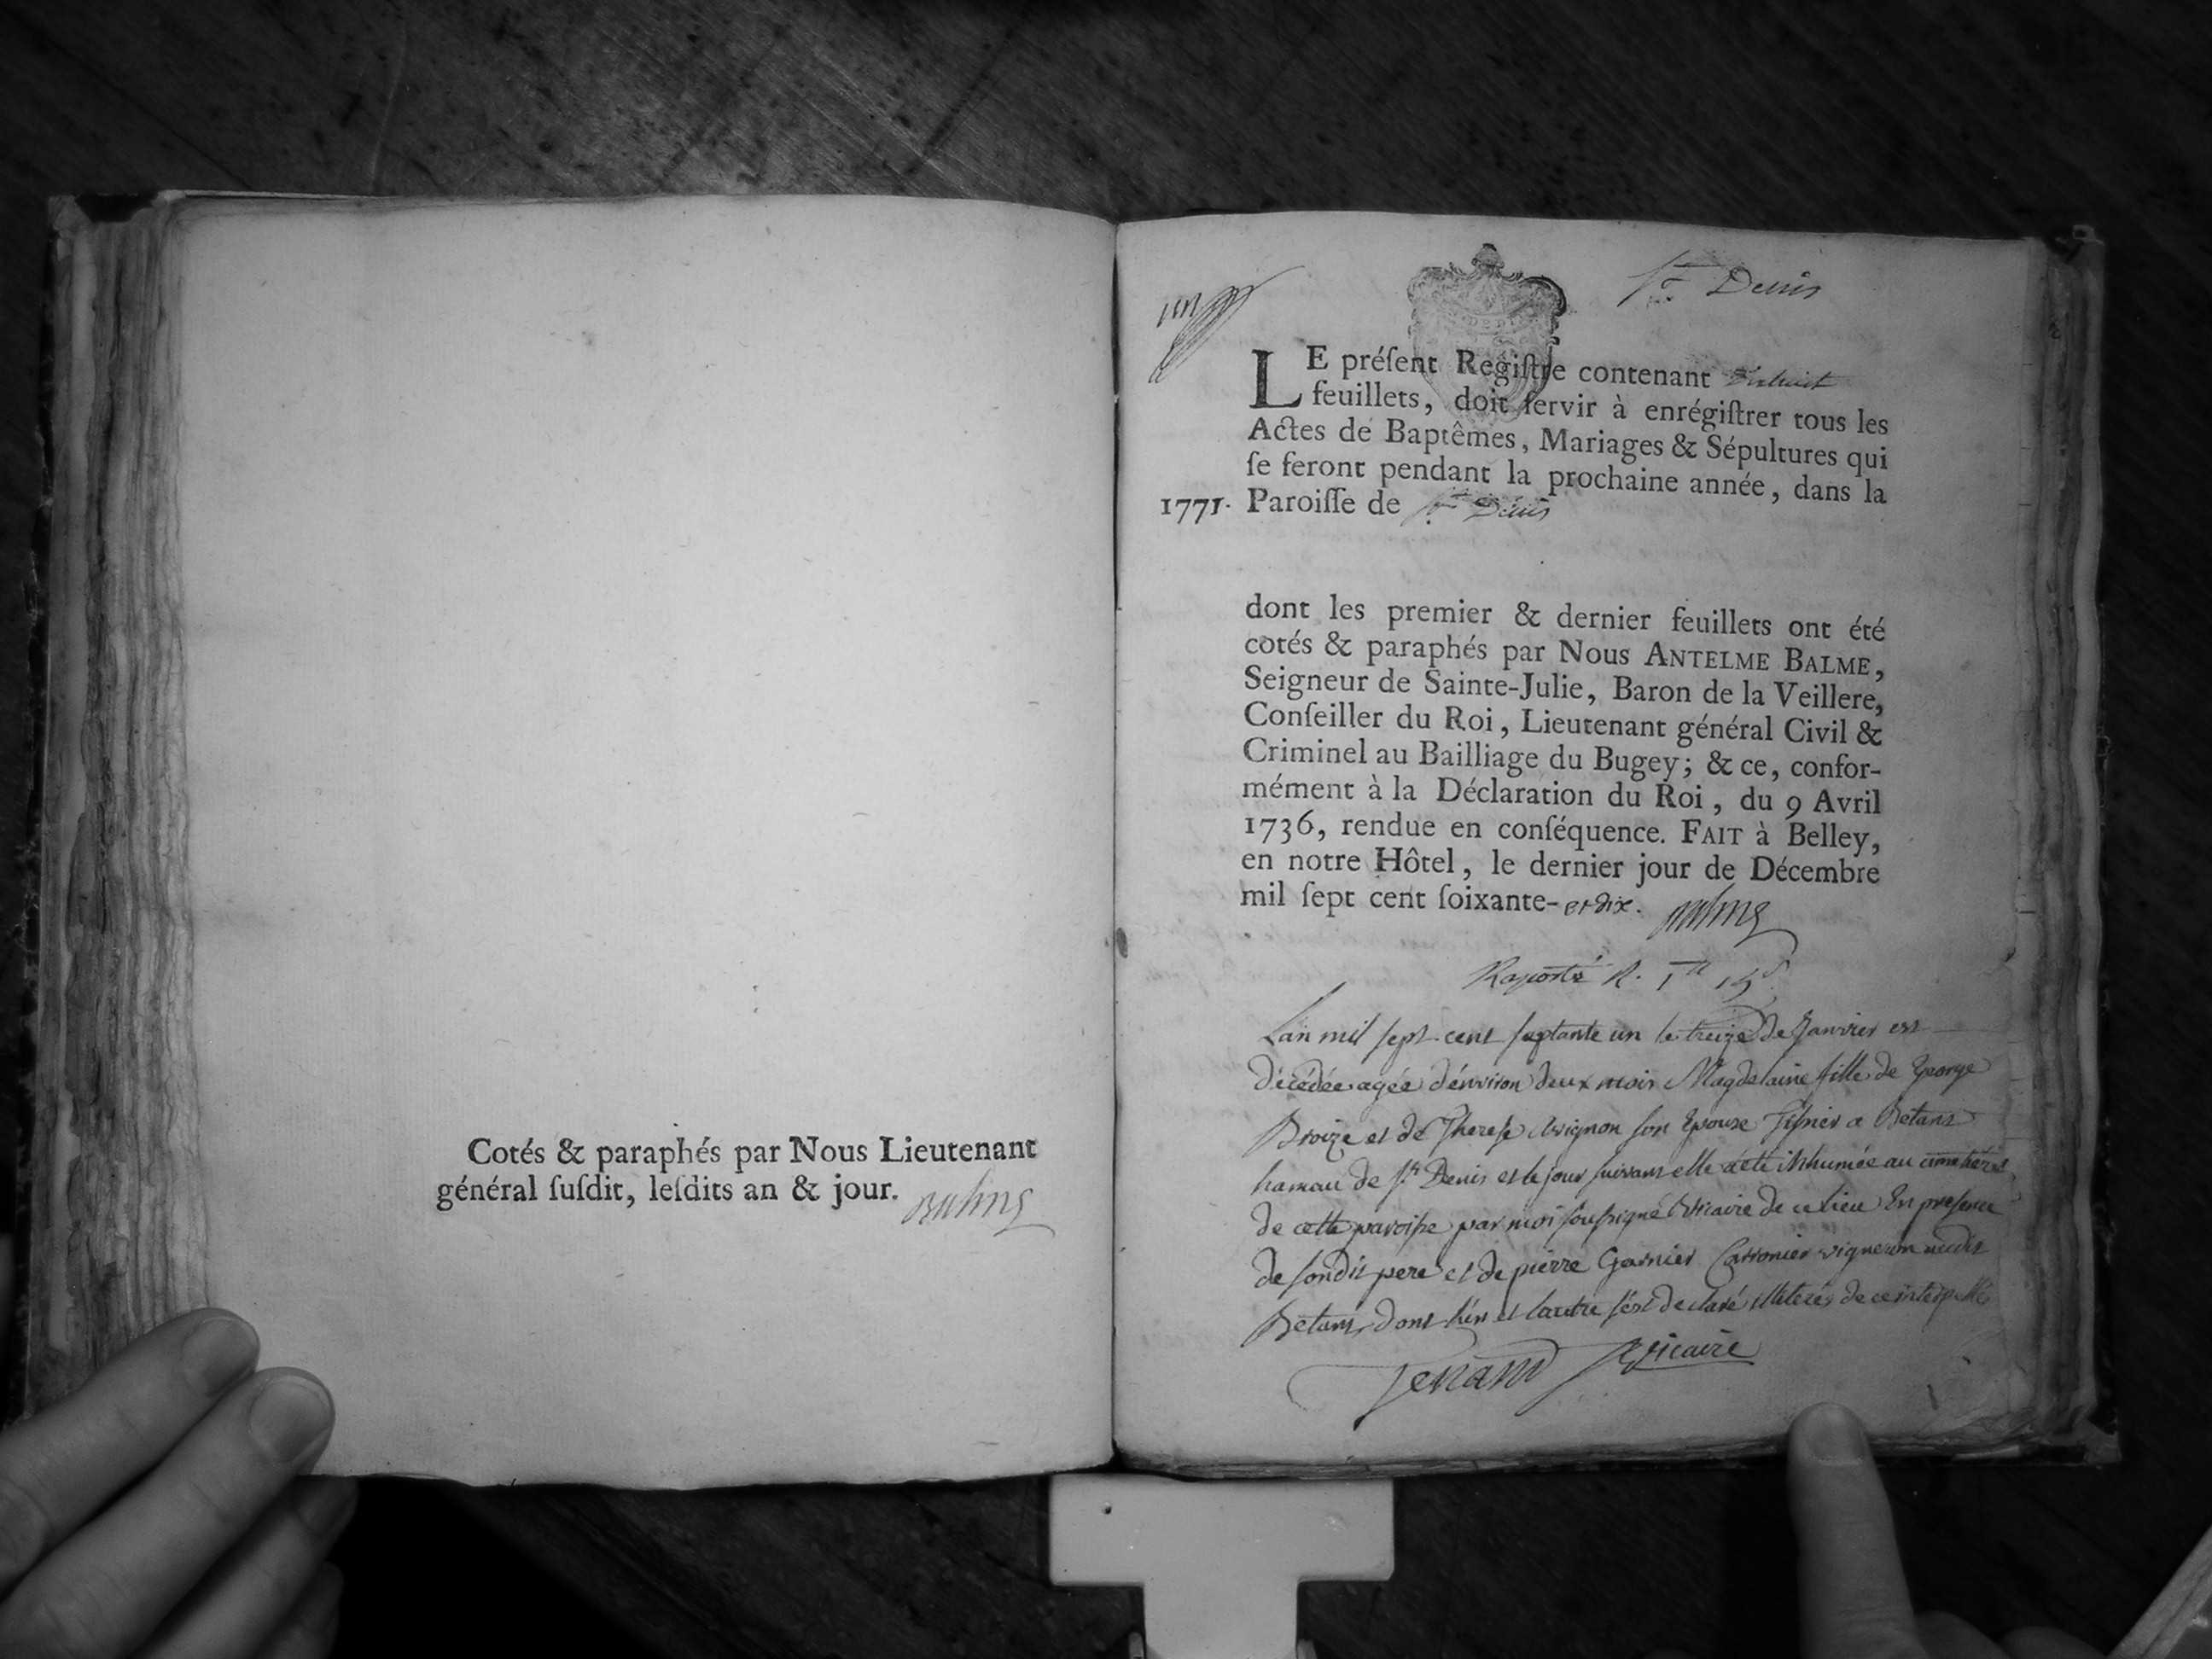 Cotés & paraphés par Nous Lieutenant
général ſuſdit, leſdits an & jour. Balme
un
St Denis
LE préſent Regiſtre contenant
feuillets, doit ſervir à enrégiſtrer tous les
Actes de Baptêmes, Mariages & Sépultures qui
ſe feront pendant la prochaine année, dans la
1771. Paroiſſe de St Denis
dont les premier & dernier feuillets ont été
cotés & paraphés par Nous ANTELME BALME,
Seigneur de Sainte-Julie, Baron de la Veillere,
Conſeiller du Roi, Lieutenant général Civil &
Criminel au Bailliage du Bugey; & ce, confor-
mément à la Déclaration du Roi, du 9 Avril
1736, rendue en conſéquence. FAIT à Belley,
en notre Hôtel, le dernier jour de Décembre
mil ſept cent ſoixante- et dix. Balme
Raporté R.
Lan mil sept cent septante un le treize de Janvier est
décédée agée d'environ deux mois Magdelaine fille de George
Broize et de Therese Avignon son Epouse a Betans
hameau de St Denis et le jour suivant elle a ete inhumée au
de cette paroisse par moi soussigné Vicaire de ce lieu En presence
de sondit pere et de pierre Garnier vigneron
Betans dont l'un et l'autre s'est declaré illiterés de ce interpellés
Tenand Vicaire